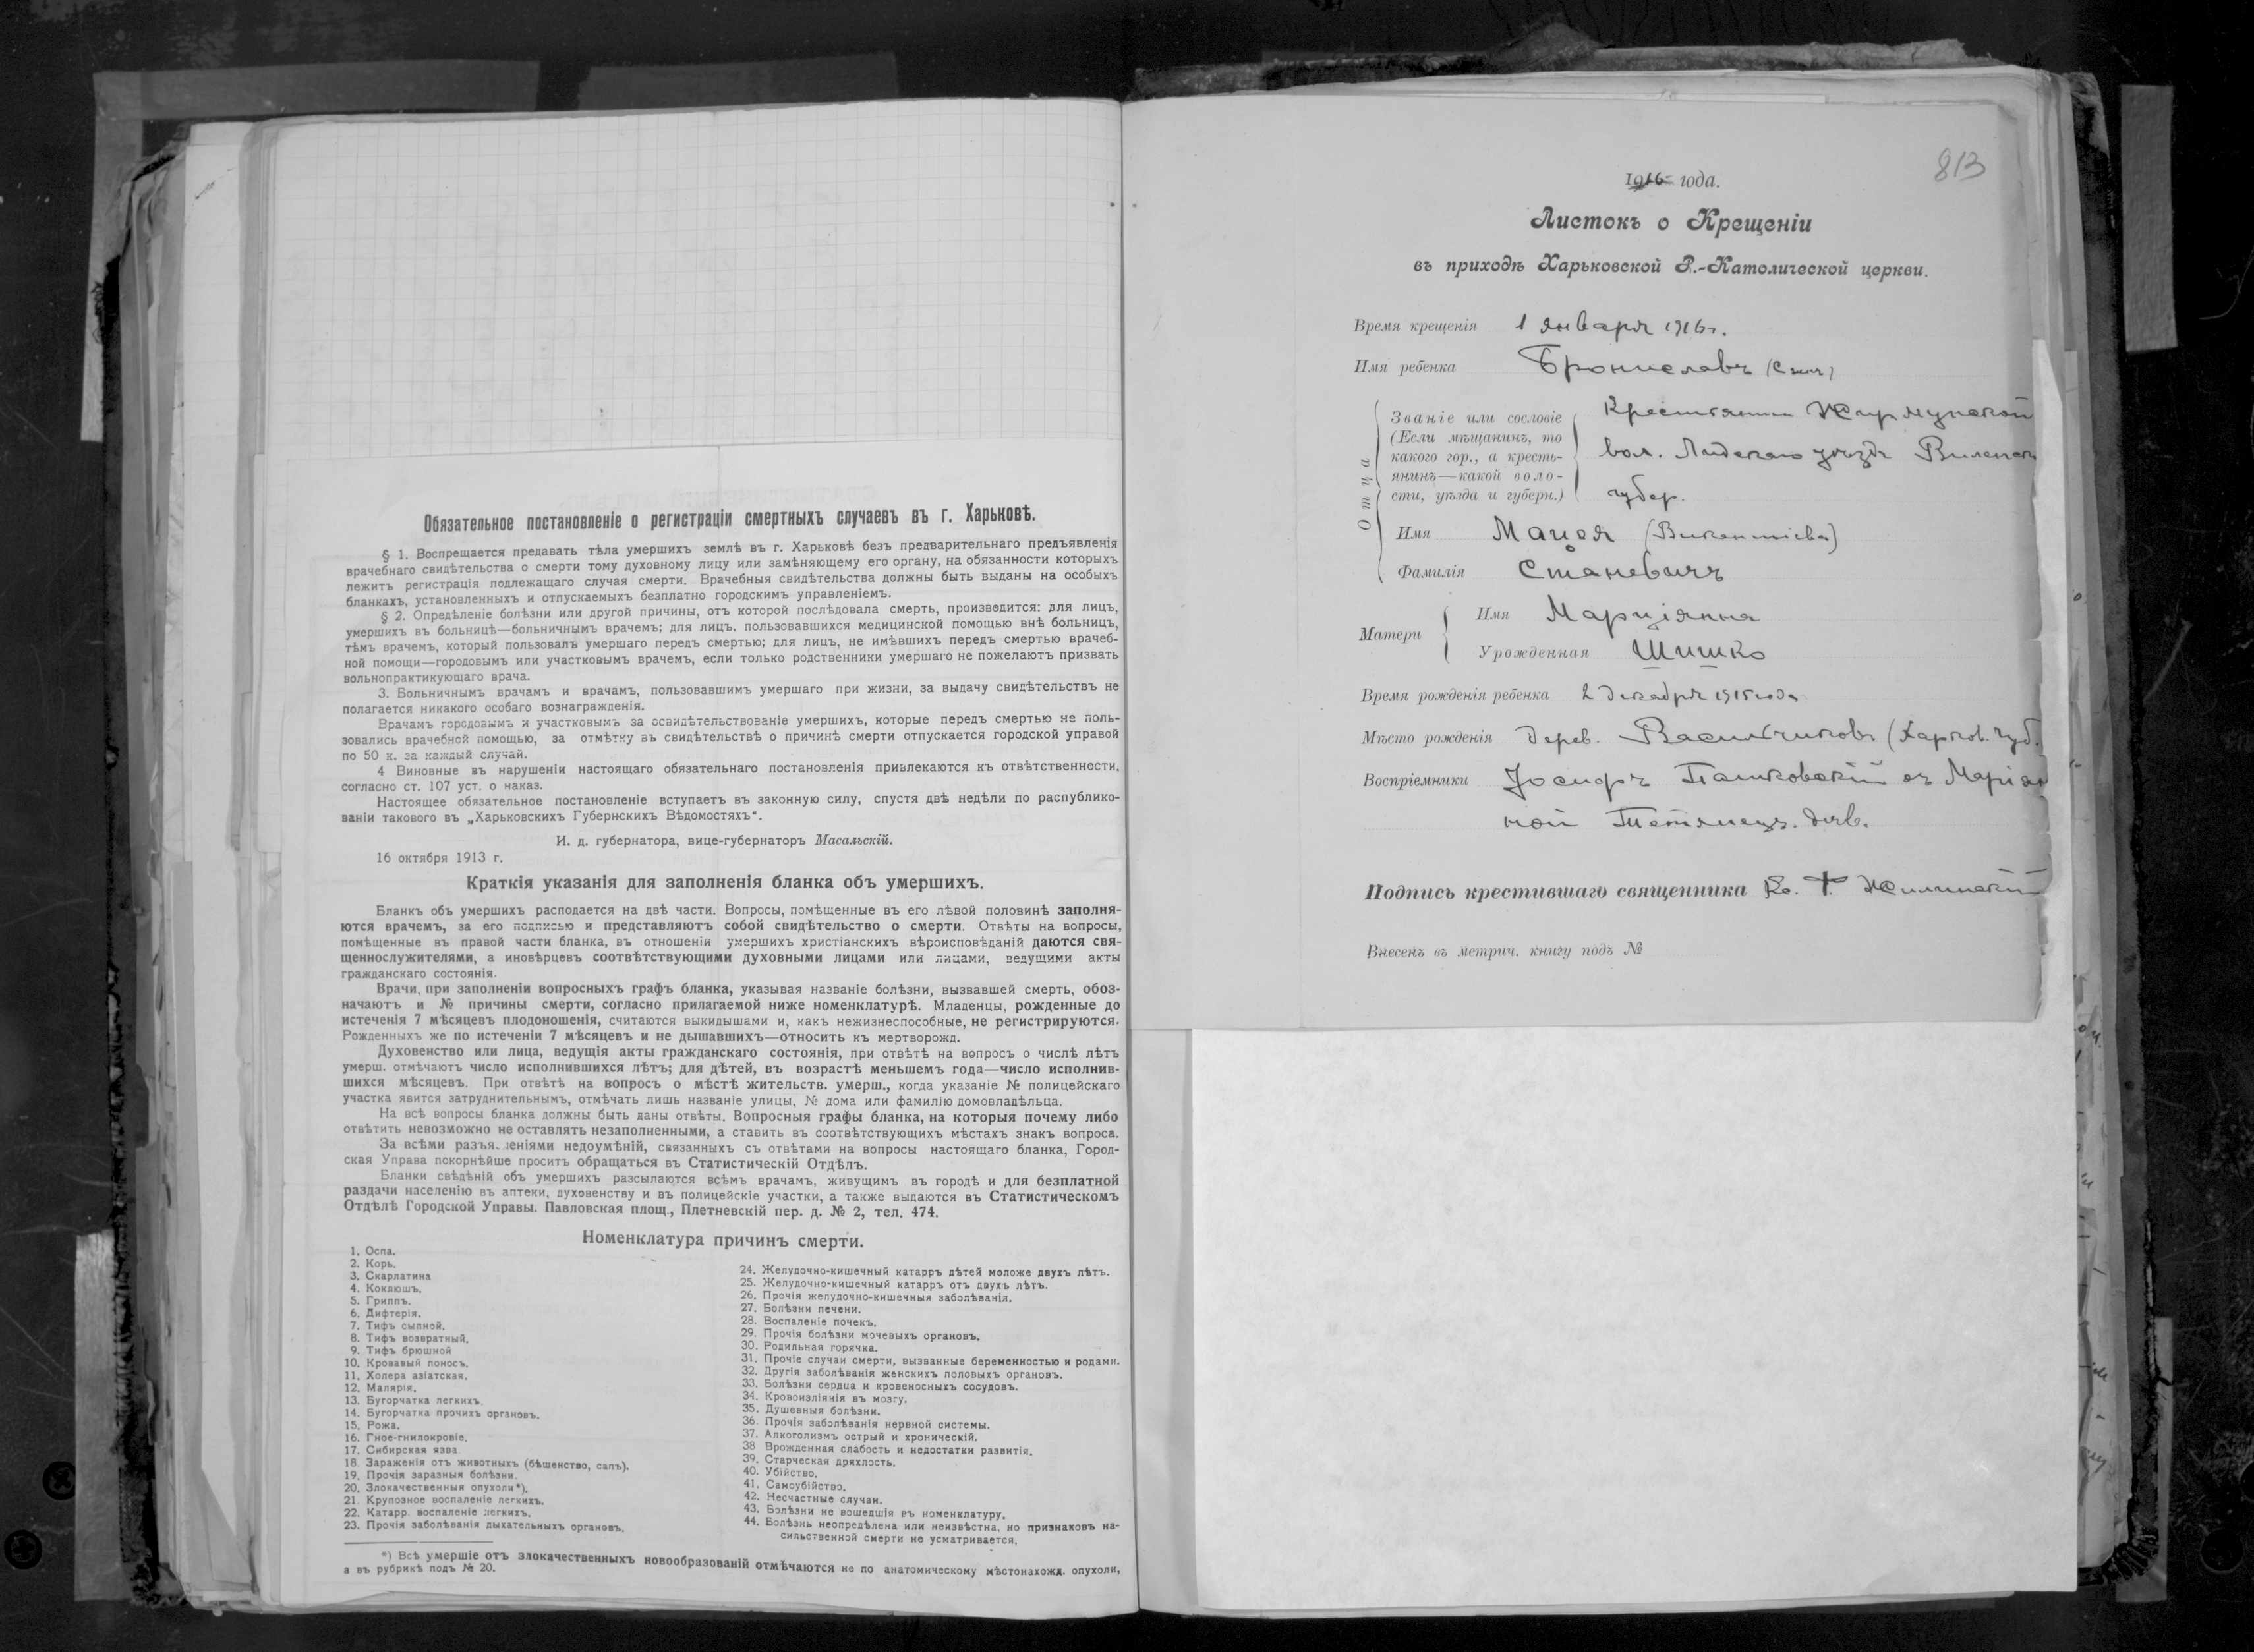 Обязательное постановленіе о регистраціи смертныхъ случаевъ въ г. Харьковѣ.
§ 1. Воспрещается предавать тѣла умершихъ землѣ въ г. Харьковѣ безъ предварительнаго предъявленія
врачебнаго свидѣтельства о смерти тому духовному лицу или замѣняющему его органу, на обязанности которыхъ
лежитъ регистрація подлежащаго случая смерти. Врачебныя свидѣтельства должны быть выданы на особыхъ
бланкахъ, установленныхъ и отпускаемыхъ безплатно городскимъ управленіемъ.
§ 2. Опредѣленіе болѣзни или другой причины, отъ которой послѣдовала смерть, производится: для лицъ,
умершихъ въ больницѣ—больничнымъ врачемъ; для лицъ, пользовавшихся медицинской помощью внѣ больницъ,
тѣмъ врачемъ, который пользовалъ умершаго передъ смертью; для лицъ, не имѣвшихъ передъ смертью врачеб-
ной помощи—городовымъ или участковымъ врачемъ, если только родственники умершаго не пожелаютъ призвать
вольнопрактикующаго врача.
3. Больничнымъ врачамъ и врачамъ, пользовавшимъ умершаго при жизни, за выдачу свидѣтельствъ не
полагается никакого особаго вознагражденія.
Врачамъ городовымъ и участковымъ за освидѣтельствованіе умершихъ, которые передъ смертью не поль-
зовались врачебной помощью, за отмѣтку въ свидѣтельствѣ о причинѣ смерти отпускается городской управой
по 50 к. за каждый случай.
4 Виновные въ нарушеніи настоящаго обязательнаго постановленія привлекаются къ отвѣтственности,
согласно ст. 107 уст. о наказ.
Настоящее обязательное постановленіе вступаетъ въ законную силу, спустя двѣ недѣли по распублико-
ваніи такового въ „Харьковскихъ Губернскихъ Вѣдомостяхъ".
И. д. губернатора, вице-губернаторъ Масальскій.
16 октября 1913 г.
Краткія указанія для заполненія бланка объ умершихъ.
Бланкъ объ умершихъ распадается на двѣ части. Вопросы, помѣщенные въ его лѣвой половинѣ заполня-
ются врачемъ, за его подписью и представляютъ собой свидѣтельство о смерти. Отвѣты на вопросы,
помѣщенные въ правой части бланка, въ отношеніи умершихъ христіанскихъ вѣроисповѣданій даются свя-
щеннослужителями, а иновѣрцевъ соотвѣтствующими духовными лицами или лицами, ведущими акты
гражданскаго состоянія.
Врачи, при заполненіи вопросныхъ графъ бланка, указывая названіе болѣзни, вызвавшей смерть, обоз-
начаютъ и № причины смерти, согласно прилагаемой ниже номенклатурѣ. Младенцы, рожденные до
истеченія 7 мѣсяцевъ плодоношенія, считаются выкидышами и, какъ нежизнеспособные, не регистрируются.
Рожденныхъ же по истеченіи 7 мѣсяцевъ и не дышавшихъ—относить къ мертворожд.
Духовенство или лица, ведущія акты гражданскаго состоянія, при отвѣтѣ на вопросъ о числѣ лѣтъ
умерш. отмѣчаютъ число исполнившихся лѣтъ; для дѣтей, въ возрастѣ меньшемъ года—число исполнив-
шихся мѣсяцевъ. При отвѣтѣ на вопросъ о мѣстѣ жительств. умерш., когда указаніе № полицейскаго
участка явится затруднительнымъ, отмѣчать лишь названіе улицы, № дома или фамилію домовладѣльца.
На всѣ вопросы бланка должны быть даны отвѣты. Вопросныя графы бланка, на которыя почему либо
отвѣтить невозможно не оставлять незаполненными, а ставить въ соотвѣтствующихъ мѣстахъ знакъ вопроса.
За всѣми разъя..леніями недоумѣній, связанныхъ съ отвѣтами на вопросы настоящаго бланка, Город-
ская Управа покорнѣйше проситъ обращаться въ Статистическій Отдѣлъ.
Бланки свѣдѣній объ умершихъ разсылаются всѣмъ врачамъ, живущимъ въ городѣ и для безплатной
раздачи населенію въ аптеки, духовенству и въ полицейскіе участки, а также выдаются въ Статистическомъ
Отдѣлѣ Городской Управы. Павловская площ., Плетневскій пер. д. № 2, тел. 474.
Номенклатура причинъ смерти.
1. Оспа.
2. Корь.
3. Скарлатина
4. Коклюшъ.
5. Гриппъ.
6. Дифтерія.
7. Тифъ сыпной.
8. Тифъ возвратный.
9. Тифъ брюшной
10. Кровавый поносъ.
11. Холера азіатская.
12. Малярія.
13. Бугорчатка легкихъ.
14. Бугорчатка прочихъ органовъ.
15. Рожа.
16. Гное-гнилокровіе.
17. Сибирская язва
18. Зараженія отъ животныхъ (бѣшенство, сапъ).
19. Прочія заразныя болѣзни.
20. Злокачественныя опухоли*).
21. Крупозное воспаленіе легкихъ.
22. Катарр. воспаленіе легкихъ.
23. Прочія заболѣванія дыхательныхъ органовъ.
24. Желудочно-кишечный катарръ дѣтей моложе двухъ лѣтъ.
25. Желудочно-кишечный катарръ отъ двухъ лѣтъ.
26. Прочія желудочно-кишечныя заболѣванія.
27. Болѣзни печени.
28. Воспаленіе почекъ.
29. Прочія болѣзни мочевыхъ органовъ.
30. Родильная горячка.
31. Прочіе случаи смерти, вызванные беременностью и родами.
32. Другія заболѣванія женскихъ половыхъ органовъ.
33. Болѣзни сердца и кровеносныхъ сосудовъ.
34. Кровоизліянія въ мозгу.
35. Душевныя болѣзни.
36. Прочія заболѣванія нервной системы.
37. Алкоголизмъ острый и хроническій.
38 Врожденная слабость и недостатки развитія.
39. Старческая дряхлость.
40. Убійство.
41. Самоубійство.
42. Несчастные случаи.
43. Болѣзни не вошедшія въ номенклатуру.
44. Болѣзнь неопредѣлена или неизвѣстна, но признаковъ на-
сильственной смерти не усматривается.
*) Всѣ умершіе отъ злокачественныхъ новообразованій отмѣчаются не по анатомическому мѣстонахожд. опухоли,
а въ рубрикѣ подъ № 20.
813
1916 года.
Листокъ о Крещеніи
въ приходѣ Харьковской Р.-Католической церкви.
Время крещенія 1 января 1916 г.
Имя ребенка Брониславъ
Отца
Званіе или сословіе
(Если мѣщанинъ, то
какого гор., а кресть-
янинъ—какой воло-
сти, уѣзда и губерн.)
Крестьянин Жирмунской
вол. Лидскаго уѣзда Виленск
губер.
Имя Мацея (Викентіева)
Фамилія Станевичъ
Матери
Имя Марціянна
Урожденная Шишко
Время рожденія ребенка 2 декабря 1915 года
Мѣсто рожденія дерев. Васильчиковъ (Харьков. губ.
Воспріемники Іосифъ Пашковскій съ Маріян
ной дѣв.
Подпись крестившаго священника Кс. Жилинскій
Внесенъ въ метрич. книгу подъ №